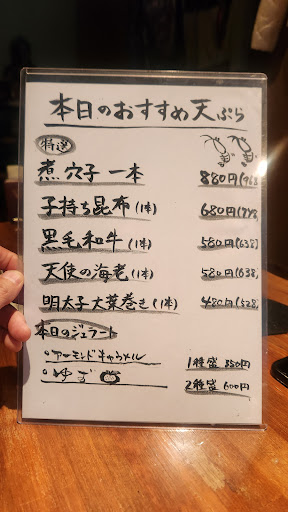 本日のおすすめ天ぷら
特選
煮穴子 一本 880円(968
子持ち昆布(1本) 680円(748
黒毛和牛(1本) 580円(638)
天使の海老(1本) 580円(638)
明太子大葉巻き(1本) 480円(528)
本日のジェラート
アーモンドキャラメル 1種盛 350円
ゆず 2種盛 600円